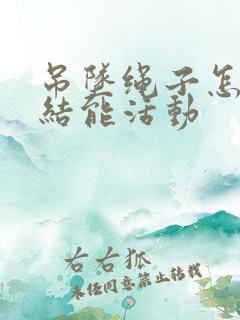 吊坠绳子怎
结能活动
右右狐
未经同意禁止转载